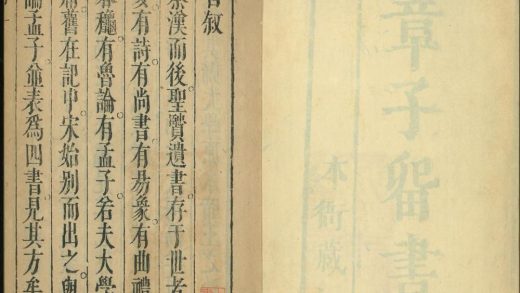 章子留書
本衙藏
叙
秦漢而後聖贒遺書存于世者
有詩有尚書有易象有曲禮
有魯論有孟子若夫大學
舊在記中宋始別而出之與
論孟子並表爲四書見其方